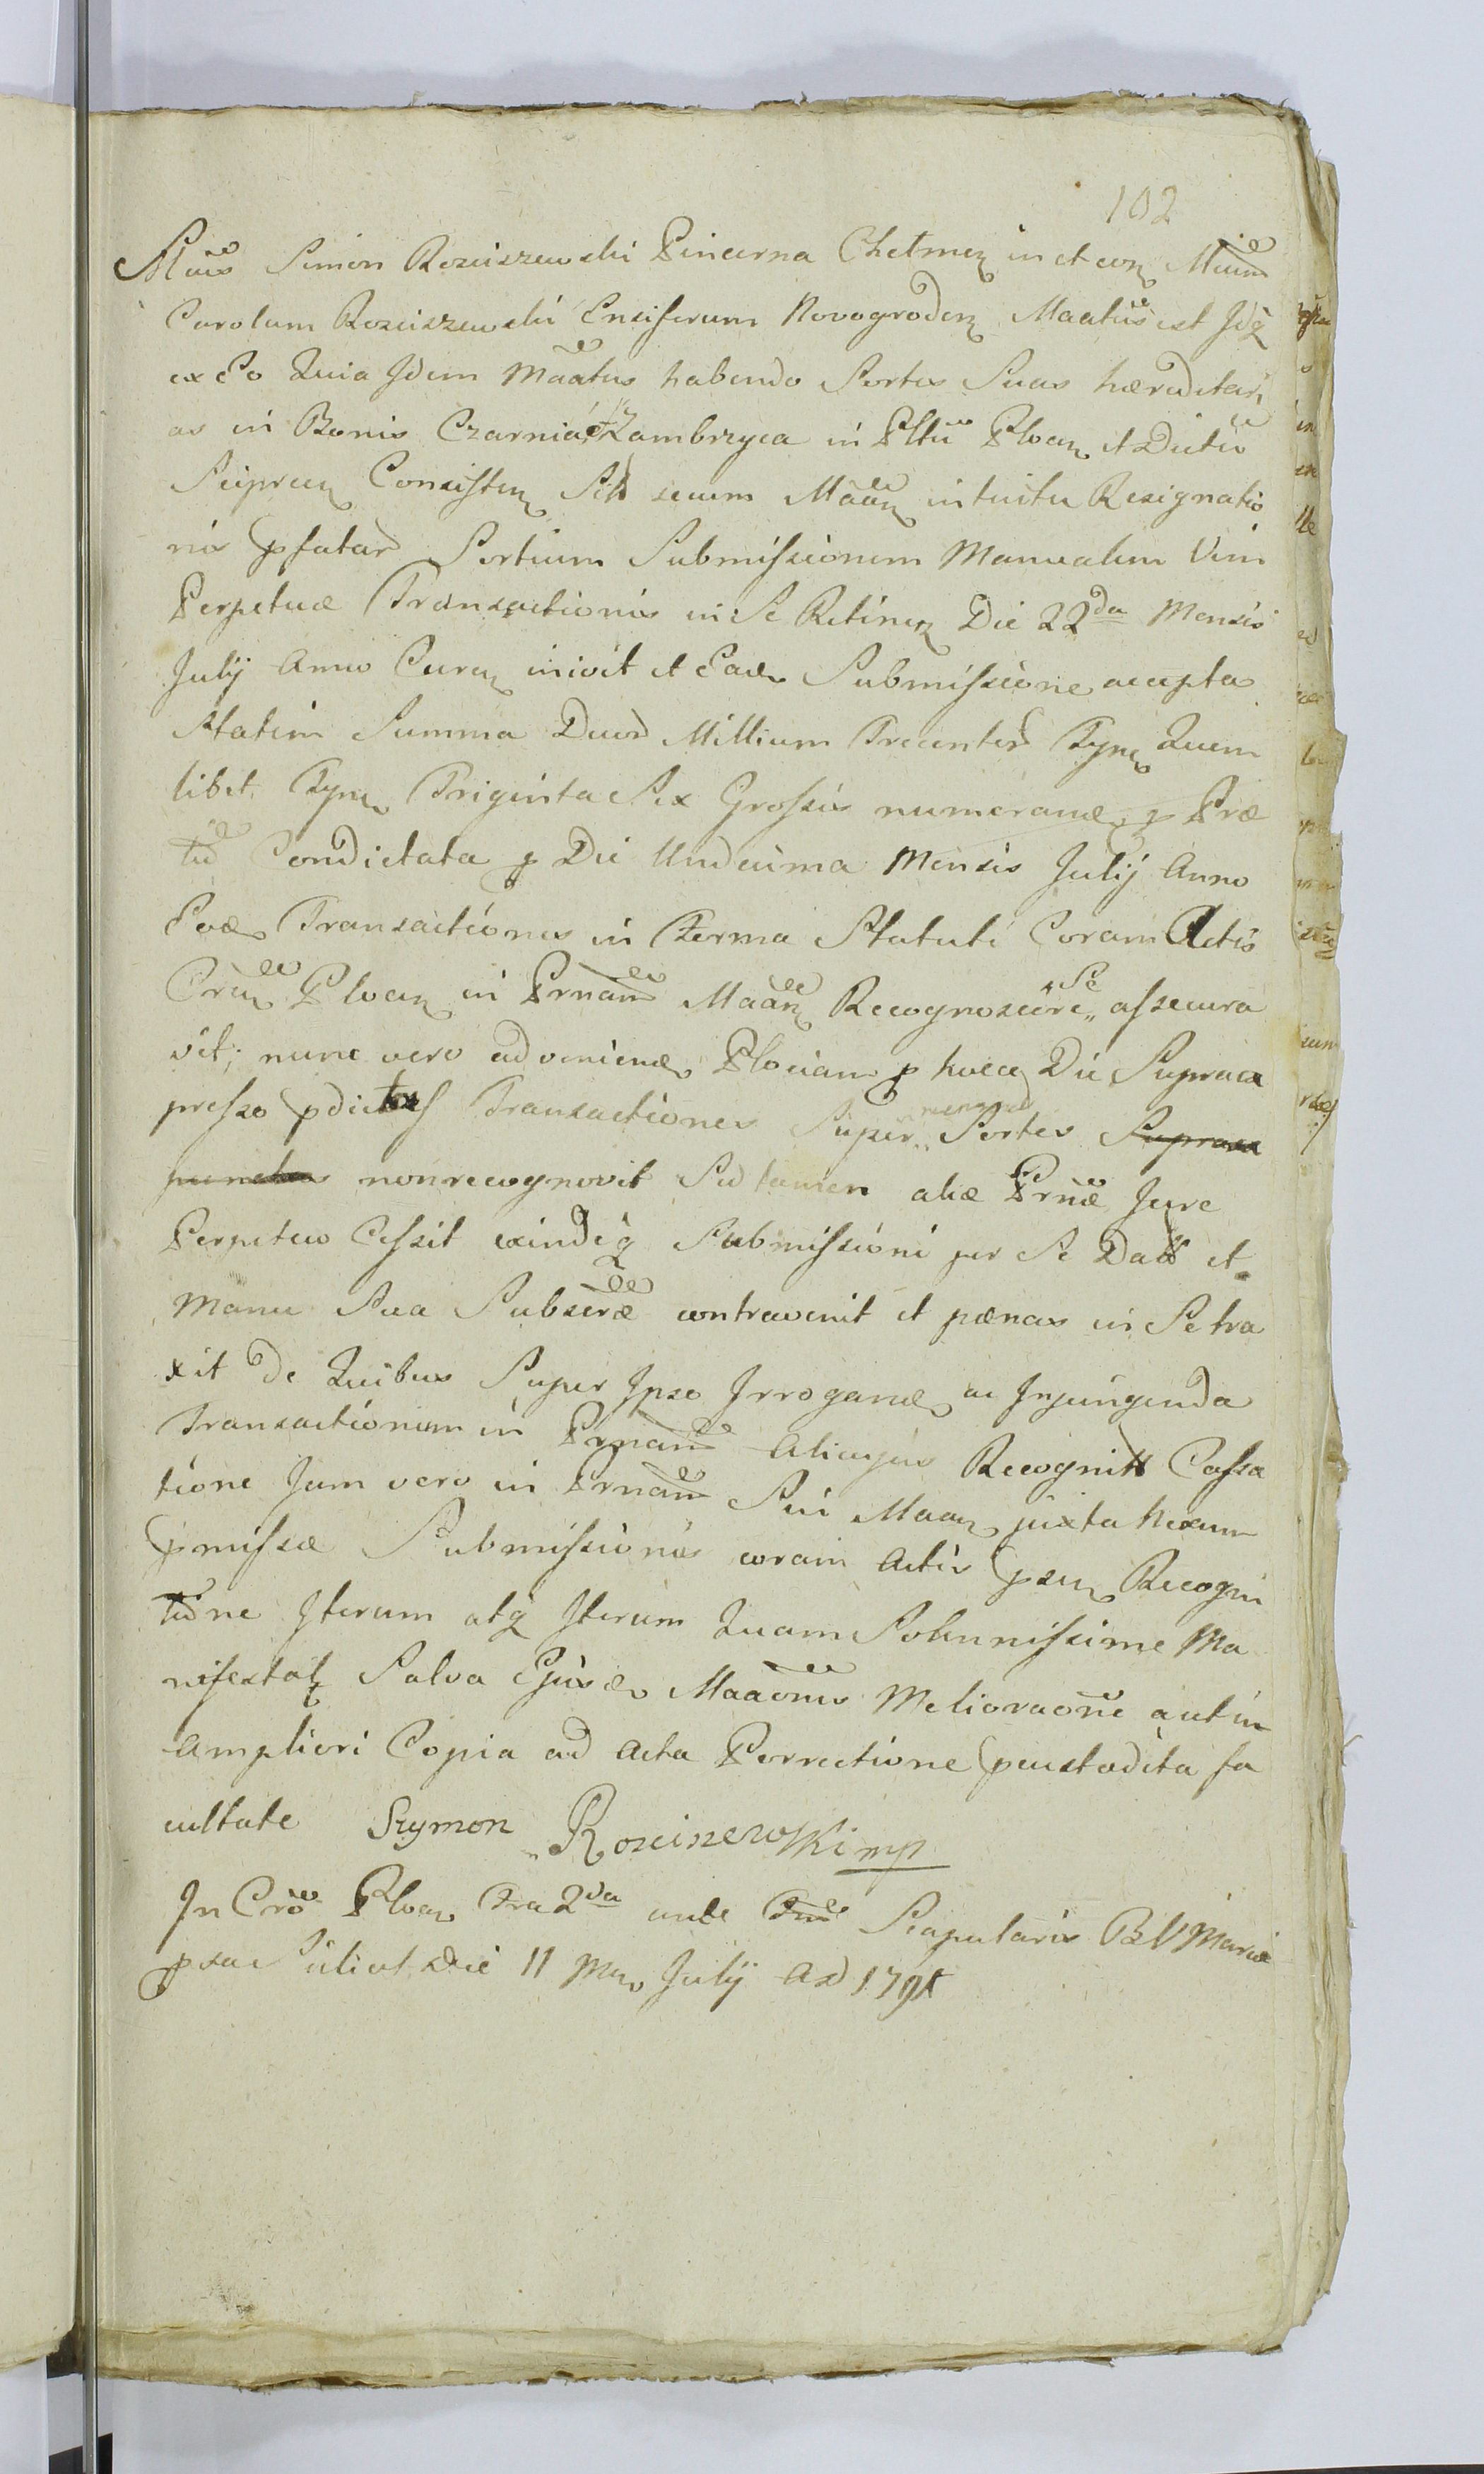 102
Mcus Simon Rosciszewski Pincerna Chelmen in et con Mcum
Carolum Rosciszewski Ensiferum Novogroden Maatus est Idq
ex Eo Quia Idem Maatus habendo Sortes Suas hæreditari
as in Bonis Czarnia et Zambrzyca in Pltu Plocen et Dictu
Sieprcen Consisten secum Maan intuitu Resignatio
nis pfatar Sortium Submissionem Manualem Vim
Perpetuæ Transactionis in Se Retinen Die 22da Mensis
Julij Anno Curen inivit et Eadem Submissione accepta
Statim Summa Duor Millium Trecentor Tynf Quem
libet Tynf Triginta Sex Grossis numerand p Præ
tio Condictata p Die Undecima Mensis Julij Anno
Eod Transactiones in Forma Statuti Coram Actis
Cren Plocen in Prnam Maan Recognoscere „Se„ assecura
vit; nunc vero adveniend Plociam p hacce Die Supraex
presso pdictas Transactiones Super Sortes Supraex
nonrecognovit Sed tamen aliæ Prnæ Jure
Perpetuo Cessit exindeq Submissioni per Se Datæ et
Manu Sua Subscræ contravenit et pænas in Se tra
xit de Quibus Super Ipso Irrogand ac Injungenda
Transactionum in Prnam Alicujus Recognitt Cassa
tione Jam vero in Prnam Sui Maan juxta Nexum
pmissæ Submissionis coram Actis psen Recogni
tione Iterum atq Iterum Quam Solennissime Ma
nifestat Salva Ejusd Maaonis Melioraone aut in
Ampliori Copia ad Acta Porrectione pcustodita fa
cultate Szymon Rosciszewski mp
In Cro Plocen Fra 2da ante Fm Scapularis B V Mariæ
Die 11 Mens Julij AD 179